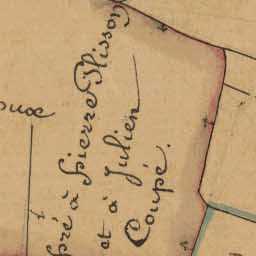 pré à Pierre Plisson
et à Julien
Coupé.